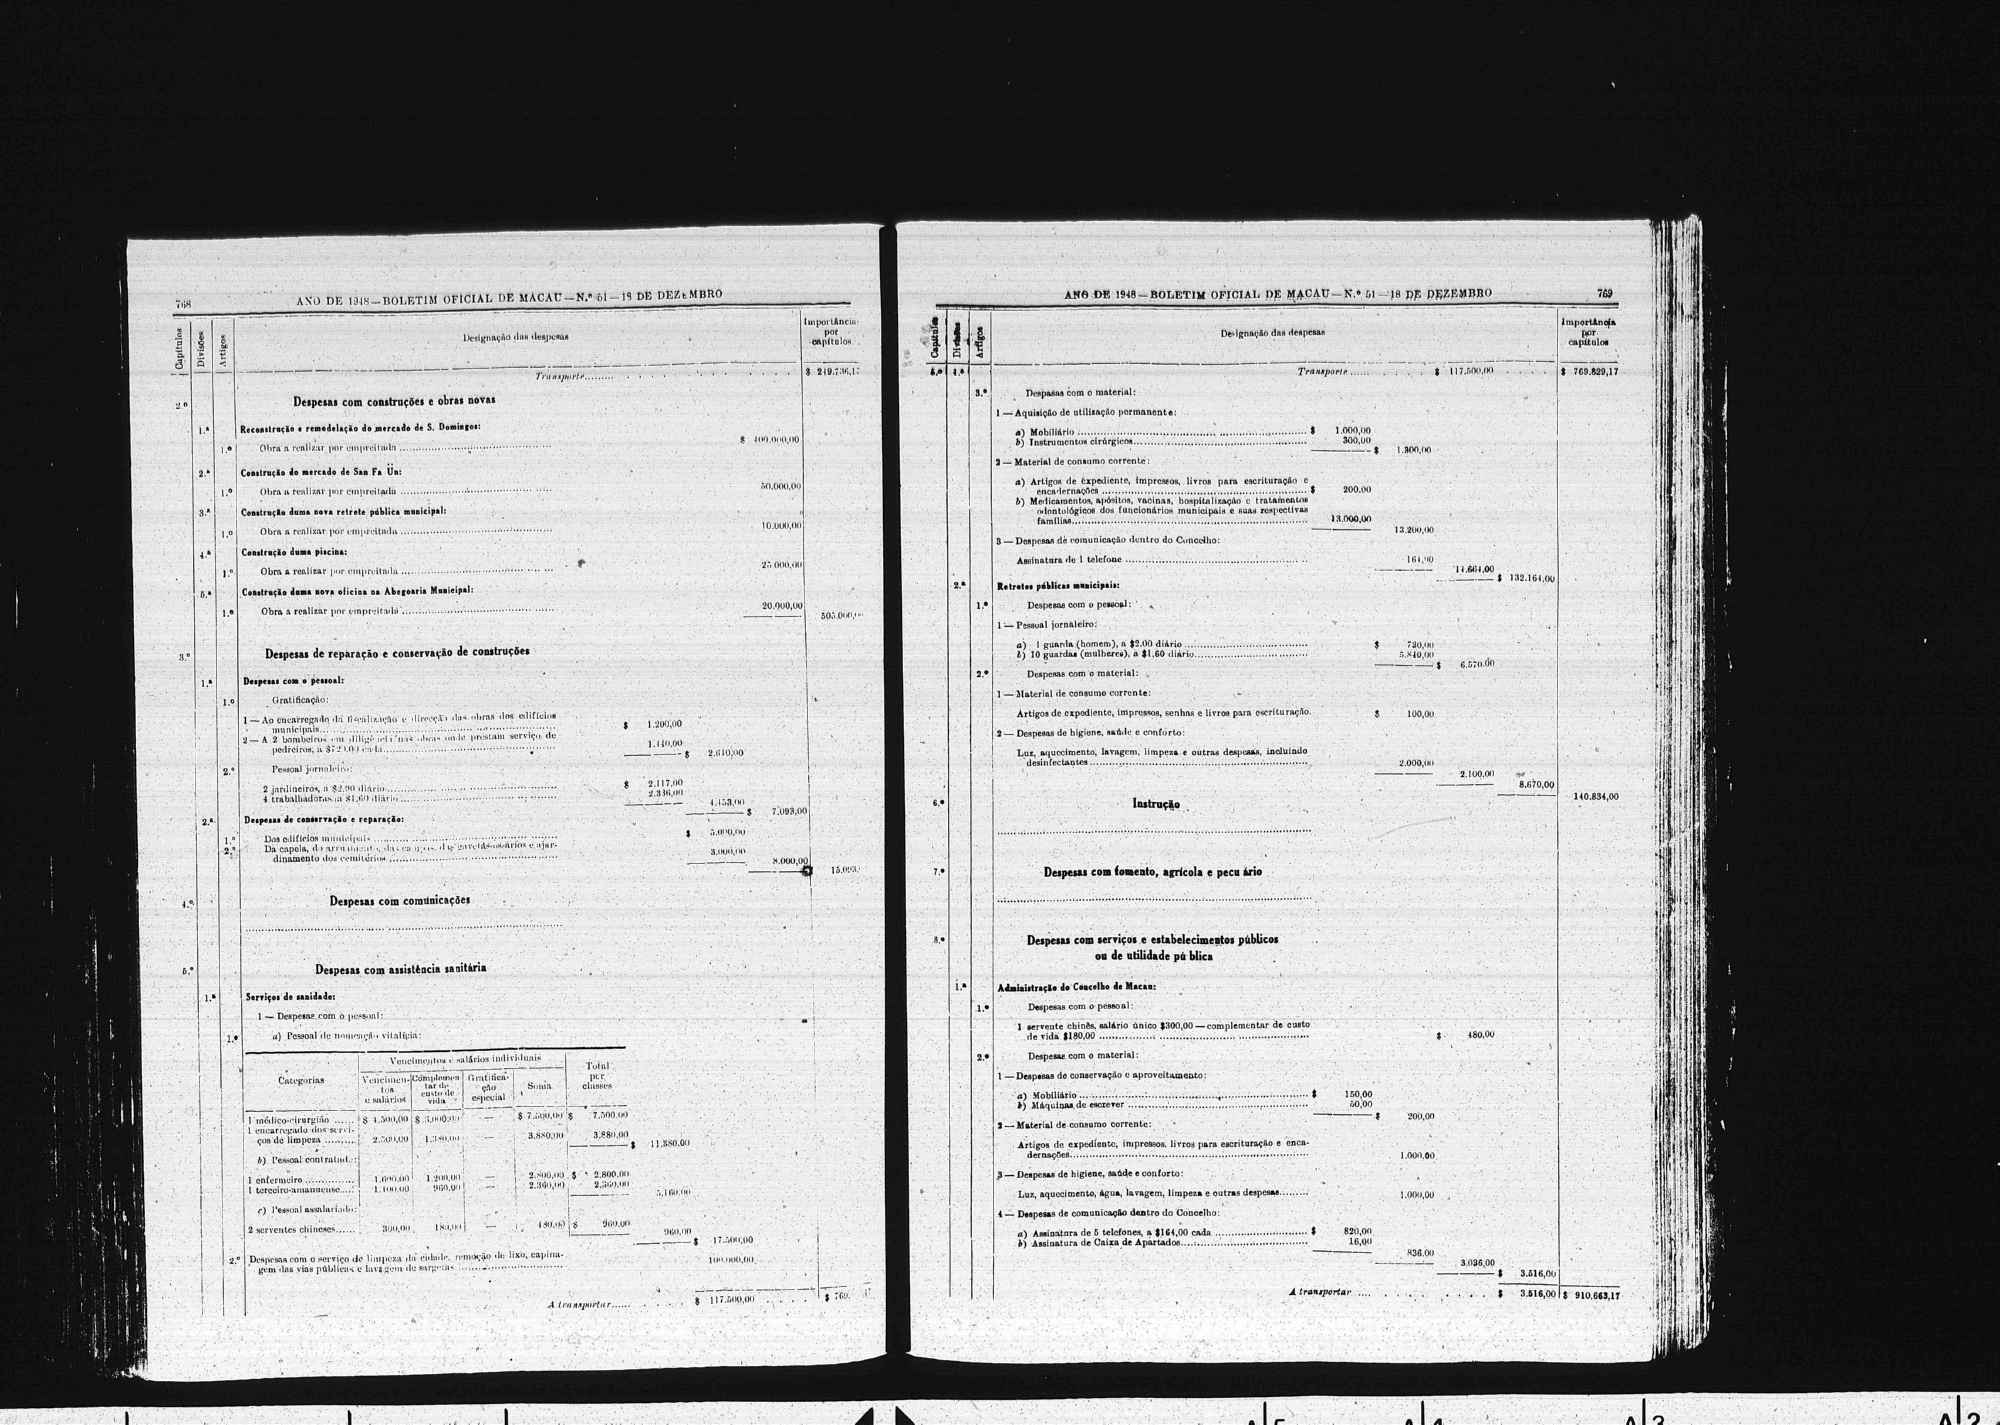 768
ANO DE 1948—BOLETIM OFICIAL DE MACAU—N.º 51—18 DE DEZEMBRO
Capítulos
Divisões
Artigos
Designação das despesas
Importância por capítulos
Transporte......... $ 249.736,17
2.º Despesas com construções e obras novas
1.ª Reconstrução e remodelação do mercado de S. Domingos:
1.º Obra a realizar por empreitada ........ $ 400.000,00
2.ª Construção do mercado de San Fa Ün:
1.º Obra a realizar por empreitada ........ 50.000,00
3.ª Construção duma nova retrete pública municipal:
1.º Obra a realizar por empreitada ........ 10.000,00
4.ª Construção duma piscina:
1.º Obra a realizar por empreitada ........ 25.000,00
5.ª Construção duma nova oficina na Abegoaria Municipal:
1.º Obra a realizar por empreitada ........ 20.000,00
505.000,
3.º Despesas de reparação e conservação de construções
1.ª Despesas com o pessoal:
1.º Gratificação:
1 — Ao encarregado da fiscalização e direcção das obras dos edifícios
municipais........ $ 1.200,00
2 — A 2 bombeiros em diligência nas obras onde prestam serviço de
pedreiros, a $720,00 cada........ 1.440,00
$ 2.640,00
2.º Pessoal jornaleiro:
2 jardineiros, a $2,90 diário........ $ 2.117,00
4 trabalhadoras a $1,60 diário........ 2.336,00
4.453,00
$ 7.093,00
2.ª Despesas de conservação e reparação:
1.º Dos edifícios municipais ........ $ 5.000,00
2.º Da capela, do arruamento, das campas, das gavetas-ossários e ajar-
dinamento dos cemitérios ........ 3.000,00
8.000,00
15.093,
4.º Despesas com comunicações
........
5.º Despesas com assistência sanitária
1.ª Serviços de sanidade:
1 — Despesas com o pessoal:
1.º a) Pessoal de nomeação vitalícia:
Categorias
Vencimentos e salários individuais
Vencimen-tos e salários
Complementar de custo de vida
Gratifica-ção especial
Soma
Total por classes
1 médico-cirurgião ...... $ 4.500,00 $ 3.000,00 — $ 7.500,00 $ 7.500,00
1 encarregado dos servi-
ços de limpeza .......... 2.500,00 1.380,00 — 3.880,00 3.880,00
$ 11.380,00
b) Pessoal contratado:
1 enfermeiro ............... 1.600,00 1.200,00 — 2.800,00 $ 2.800,00
1 terceiro-amanuense.... 1.400,00 960,00 — 2.360,00 2.360,00
5.160,00
c) Pessoal assalariado:
2 serventes chineses...... 300,00 180,00 — 480,00 $ 960,00
960,00
$ 17.500,00
2.º Despesas com o serviço de limpeza da cidade, remoção de lixo, capina-
gem das vias públicas e lavagem de sargetas ........ 100.000,00
A transportar...... $ 117.500,00 $ 769.
ANO DE 1948—BOLETIM OFICIAL DE MACAU—N.º 51—18 DE DEZEMBRO
769
Capítulos
Divisões
Artigos
Designação das despesas
Importância por capítulos
5.º 1.ª Transporte ...... $ 117.500,00 $ 769.829,17
3.º Despasas com o material:
1 — Aquisição de utilização permanente:
a) Mobiliário ........ $ 1.000,00
b) Instrumentos cirúrgicos........ 300,00
$ 1.300,00
2 — Material de consumo corrente:
a) Artigos de expediente, impressos, livros para escrituração e
encadernações ........ $ 200,00
b) Medicamentos, apósitos, vacinas, hospitalização e tratamentos
odontológicos dos funcionários municipais e suas respectivas
famílias........ 13.000,00
13.200,00
3 — Despesas de comunicação dentro do Concelho:
Assinatura de 1 telefone ........ 164,00
14.664,00
$ 132.164,00
2.ª Retretes públicas municipais:
1.º Despesas com o pessoal:
1 — Pessoal jornaleiro:
a) 1 guarda (homem), a $2,00 diário ........ $ 730,00
b) 10 guardas (mulheres), a $1,60 diário........ 5.840,00
$ 6.570,00
2.º Despesas com o material:
1 — Material de consumo corrente:
Artigos de expediente, impressos, senhas e livros para escrituração. $ 100,00
2 — Despesas de higiene, saúde e conforto:
Luz, aquecimento, lavagem, limpeza e outras despesas, incluindo
desinfectantes ........ 2.000,00
2.100,00
8.670,00
140.834,00
6.º Instrução
........
7.º Despesas com fomento, agrícola e pecu ário
........
8.º Despesas com serviços e estabelecimentos públicos
ou de utilidade pú blica
1.ª Administração do Concelho de Macau:
1.º Despesas com o pessoal:
1 servente chinês, salário único $300,00 — complementar de custo
de vida $180,00 ........ $ 480,00
2.º Despesas com o material:
1 — Despesas de conservação e aproveitamento:
a) Mobiliário ........ $ 150,00
b) Máquinas de escrever ........ 50,00
$ 200,00
2 — Material de consumo corrente:
Artigos de expediente, impressos, livros para escrituração e enca-
dernações........ 1.000,00
3 — Despesas de higiene, saúde e conforto:
Luz, aquecimento, água, lavagem, limpeza e outras despesas........ 1.000,00
4 — Despesas de comunicação dentro do Concelho:
a) Assinatura de 5 telefones, a $164,00 cada ........ $ 820,00
b) Assinatura de Caixa de Apartados........ 16,00
836,00
3.036,00
$ 3.516,00
A transportar .... $ 3.516,00 $ 910.663,17